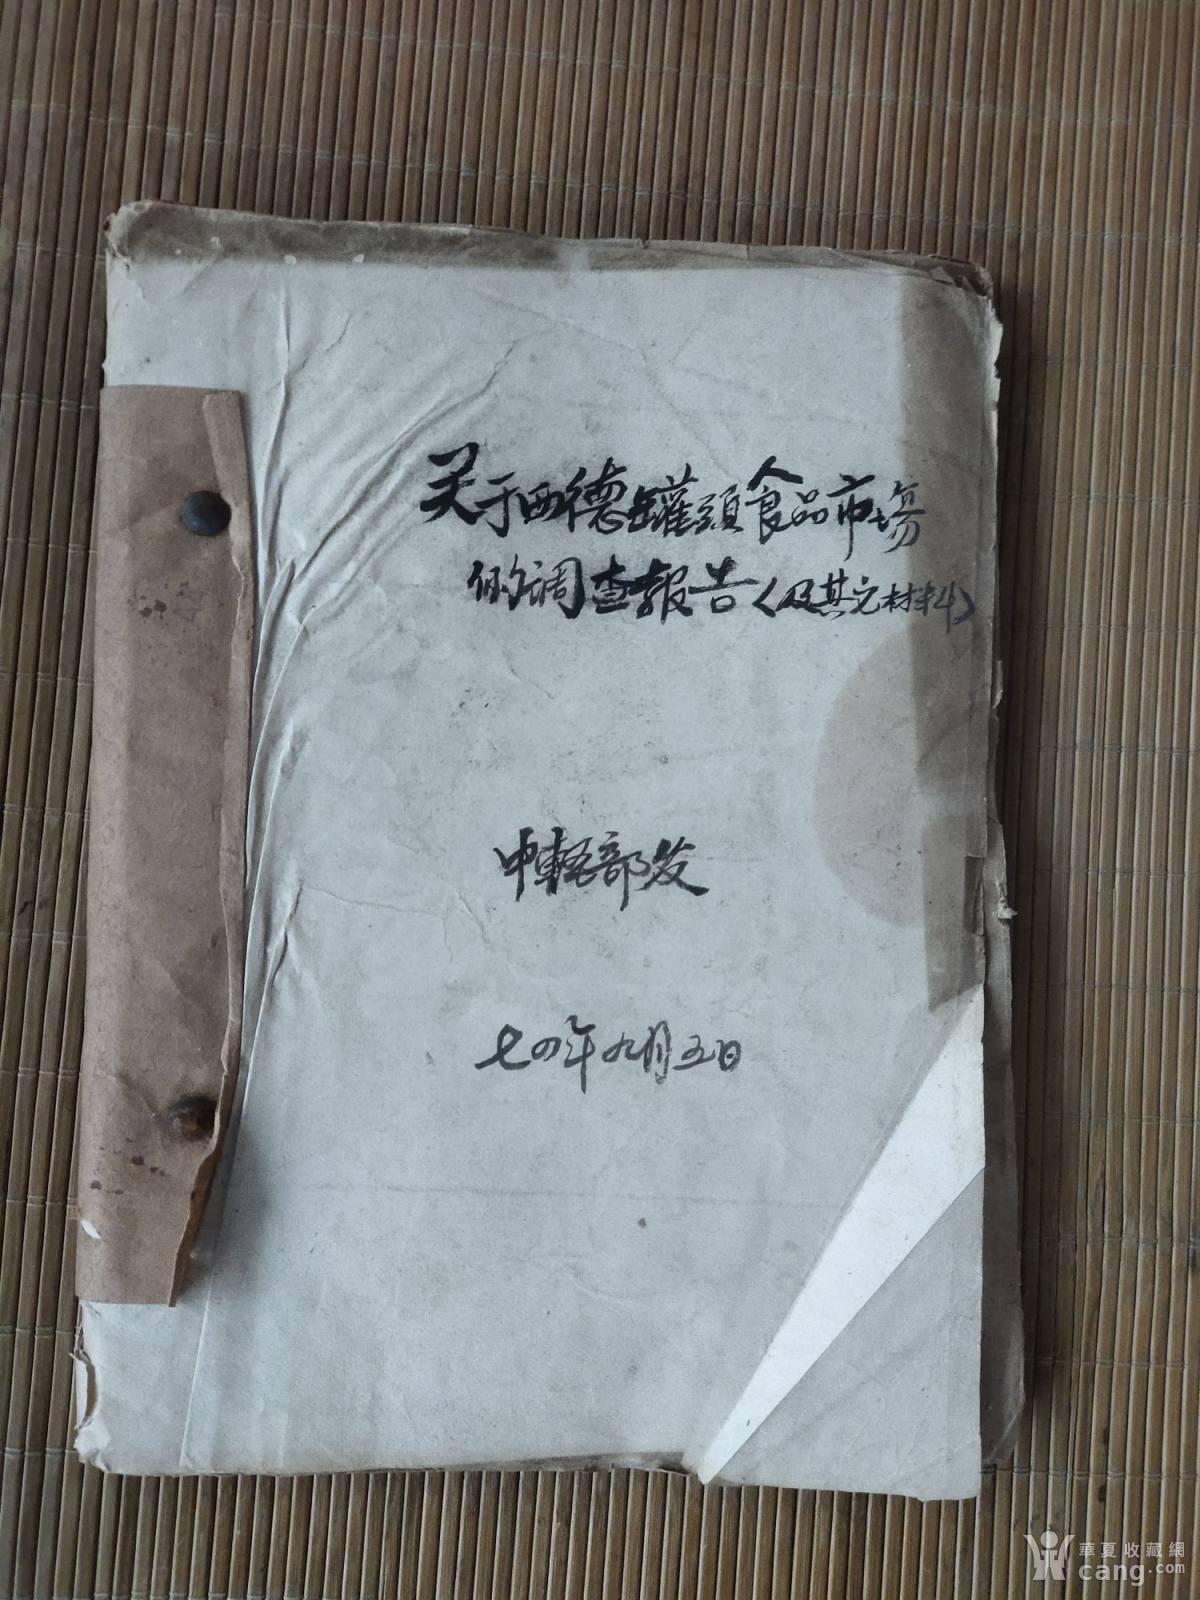 关于西德罐頭食品市場
的调查报告(及其它材料)
中轻部发
七四年九月五日
華夏收藏網
cang.com